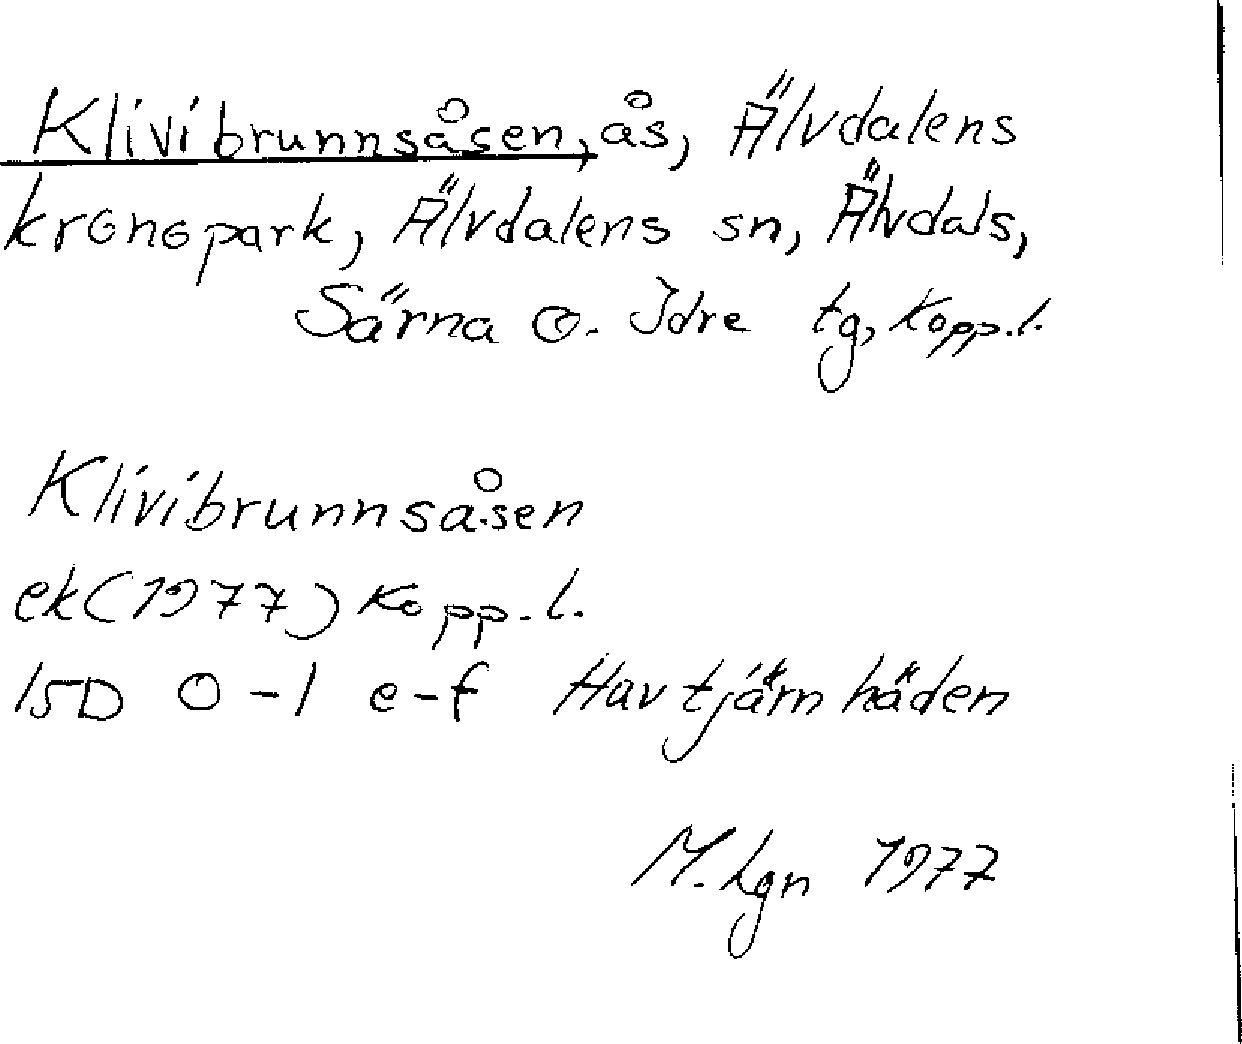 Klivibrunnsåsen, ås, Älvdalens
kronopark, Älvdalens sn, Älvdals,
Särna o. Idre tg, Kopp.l.
Klivibrunnsåsen
ek(1977) Kopp.l.
15D 0-1 e-f Havtjärnhäden
M.Lgn 1977